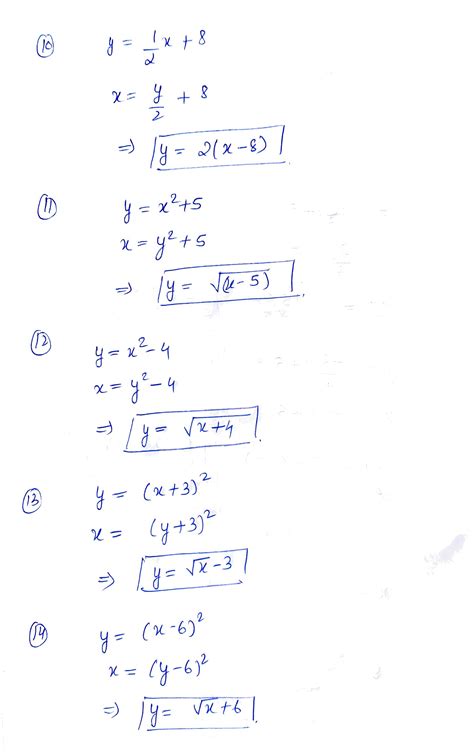 (10) y = 1/2 x + 8
x = y/2 + 8
⇒ y = 2(x-8)
(11) y = x²+5
x = y²+5
⇒ y = √(x-5)
(12) y = x²-4
x = y²-4
⇒ y = √x+4
(13) y = (x+3)²
x = (y+3)²
⇒ y = √x-3
(14) y = (x-6)²
x = (y-6)²
⇒ y = √x+6